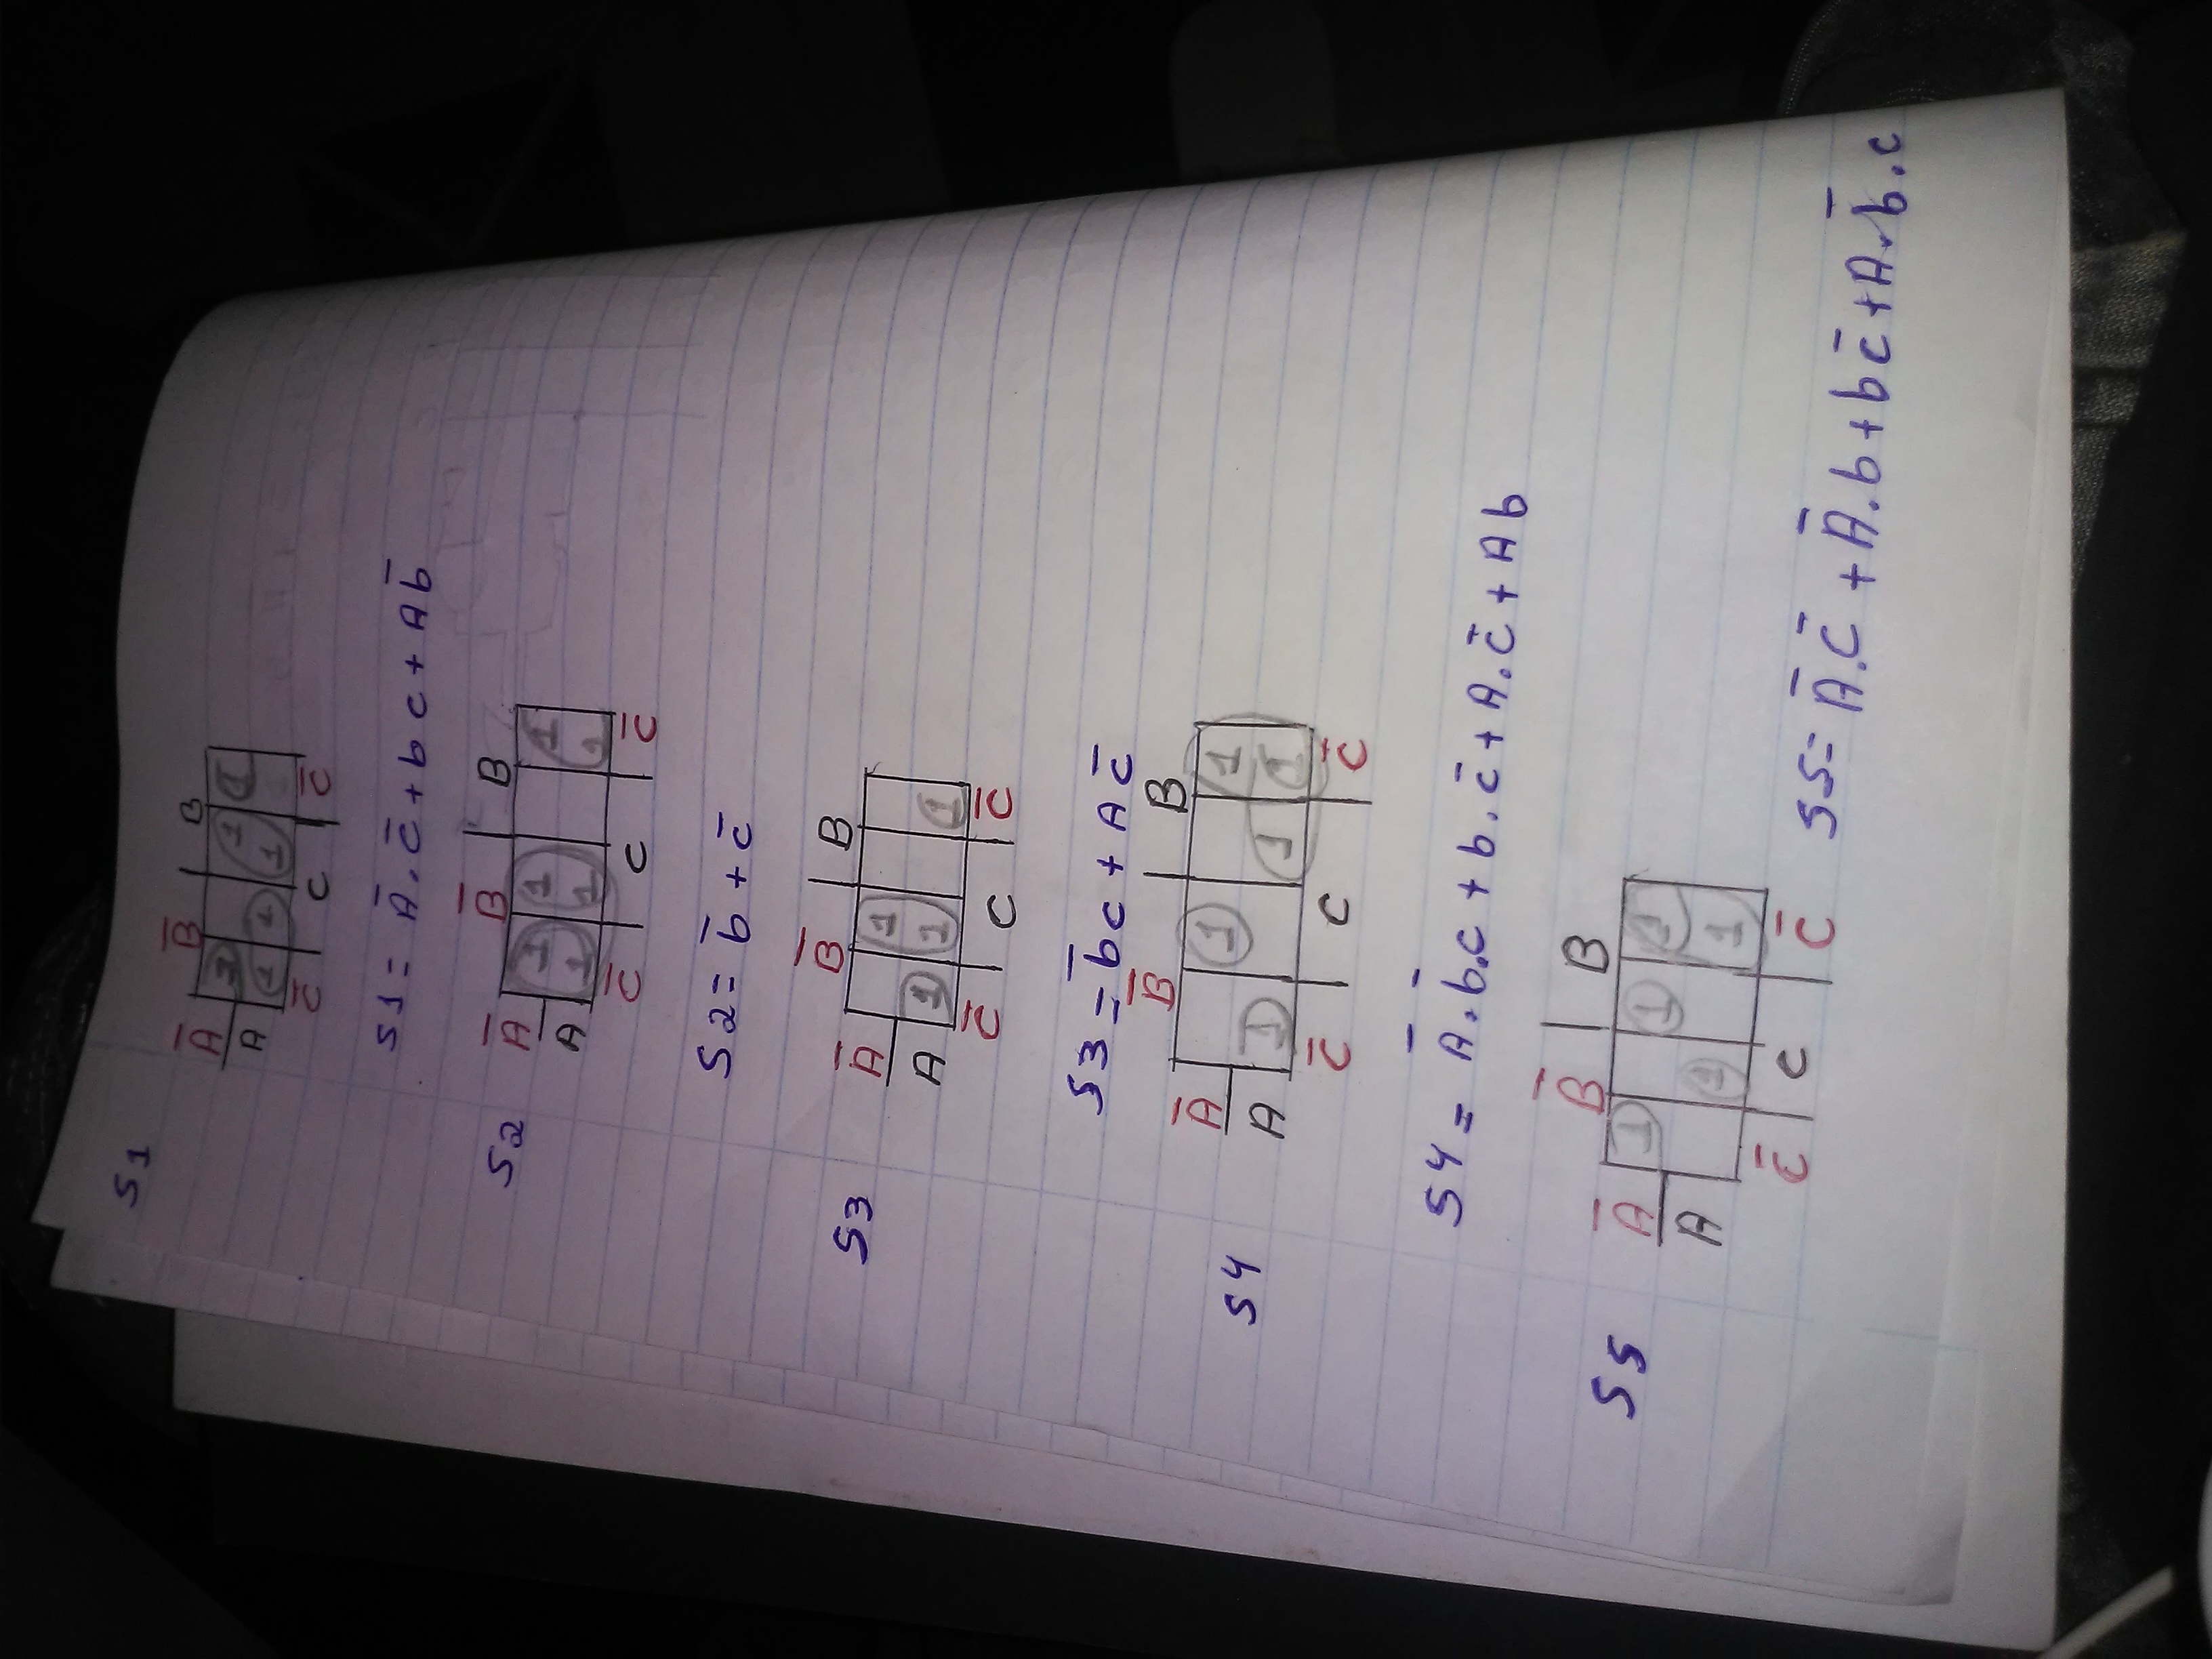 S1
B̅ B
A̅ 1 1 1
A 1 1 1
C̅ C C̅
S1 = A̅ . C̅ + b c + A b̅
S2
B̅ B
A̅ 1 1 1
A 1 1 1
C̅ C C̅
S2 = b̅ + c̅
S3
B̅ B
A̅ 1
A 1 1 1
C̅ C C̅
S3 = b̅ c + A c̅
S4
B̅ B
A̅ 1 1
A 1 1 1
C̅ C C̅
S4 = A̅ . b̅ . c + b . c̅ + A . c̅ + A b
S5
B̅ B
A̅ 1 1 1
A 1 1
C̅ C C̅
S5 = A̅ . C̅ + A̅ . b + b c̅ + A . b̅ . c